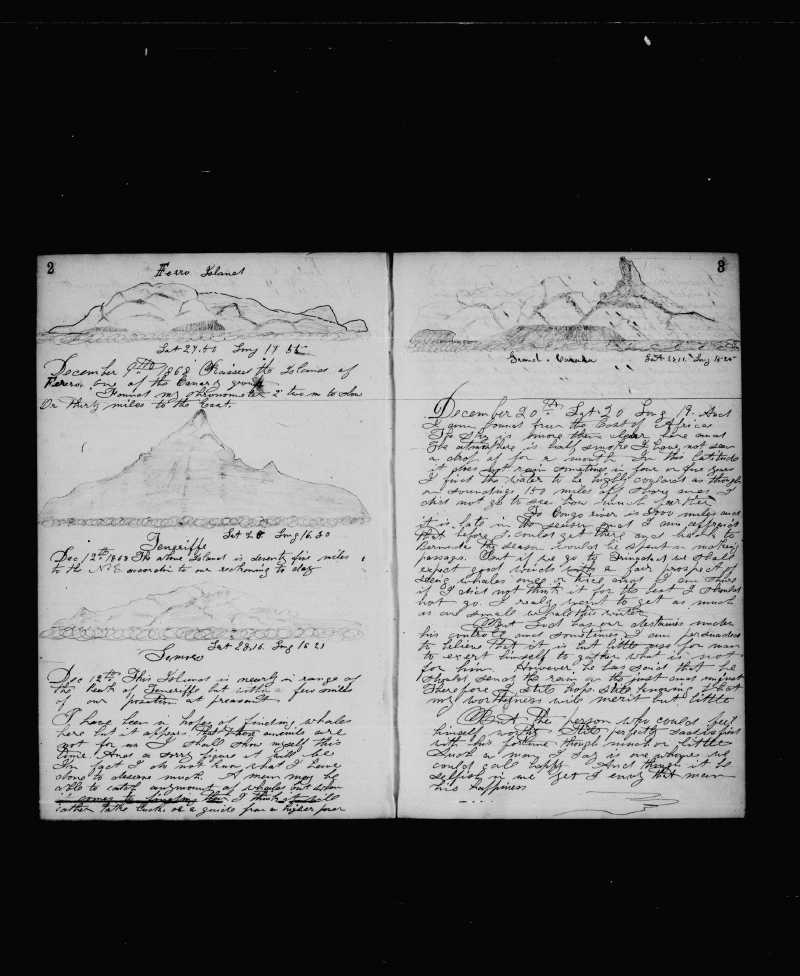 2
Ferro Island
Lat 27.50 Long 17 55
December 9th 1868 Raises the Islands of
Ferro. One of the Canary group
Found my chronometer 2 two m to slow
Or thirty miles to the East.
Lat 28 Long 16.30
Teneriffe
Dec 12th 1868 The above Island is seventy five miles
to the N.E according to our reckoning to day
Lat 28,16. Long 16 21
Dec 12th This Island is nearly in range of
the Peak of Teneriffe but within a few miles
of our position at preasant
I have been in hopes of finding whales
here but it appears that those animils are
not for me I shall show myself this
time And a sorry figure it will be
In fact I do not know what I have
done to deserve much. A man may be
able to catch any amount of whales but when
it comes to finding them I think
rather take luck or a guide from a higher power
3
Grand Canada
Long 15 25
December 20th Lat 20 Long 19. And
I am bound from the Coast of Africa
The Sky is more then clear here and
the atmosphere is half smoke I have not seen
a drop of for a month In this latitude
it does not rain sometimes in four or five years
I find the water to be highly coulard as though
on soundings 150 miles off shore and I
did not go to see how much further
To Congo river is 2000 miles and
it is late in the season and I am affraid
that before I could get there and back to
Bermuda the season would be spent in making
passage. But if we go to Trinadad we shall
expect good winds with a fair prospect of
seeing whales once or twice and I am shure
if I did not think it for the best I should
not go. I realy want to get as much
as one small whale this winter
But God has our destanies under
his controle and sometimes I am persuaded
to believe that it is but little use for man
to exert himself to gather what is not
for him. However he has said that he
should send the rain on the just and unjust
Therefore I still hope still knowing that
my worthyness will merit but little
But The person who could feel
himself worthy Still perfectly sattisfied
with his fortune though much or little
Such a man I say is one whome we
could call happy. And though it be
selfish in me yet I envy that man
his happiness